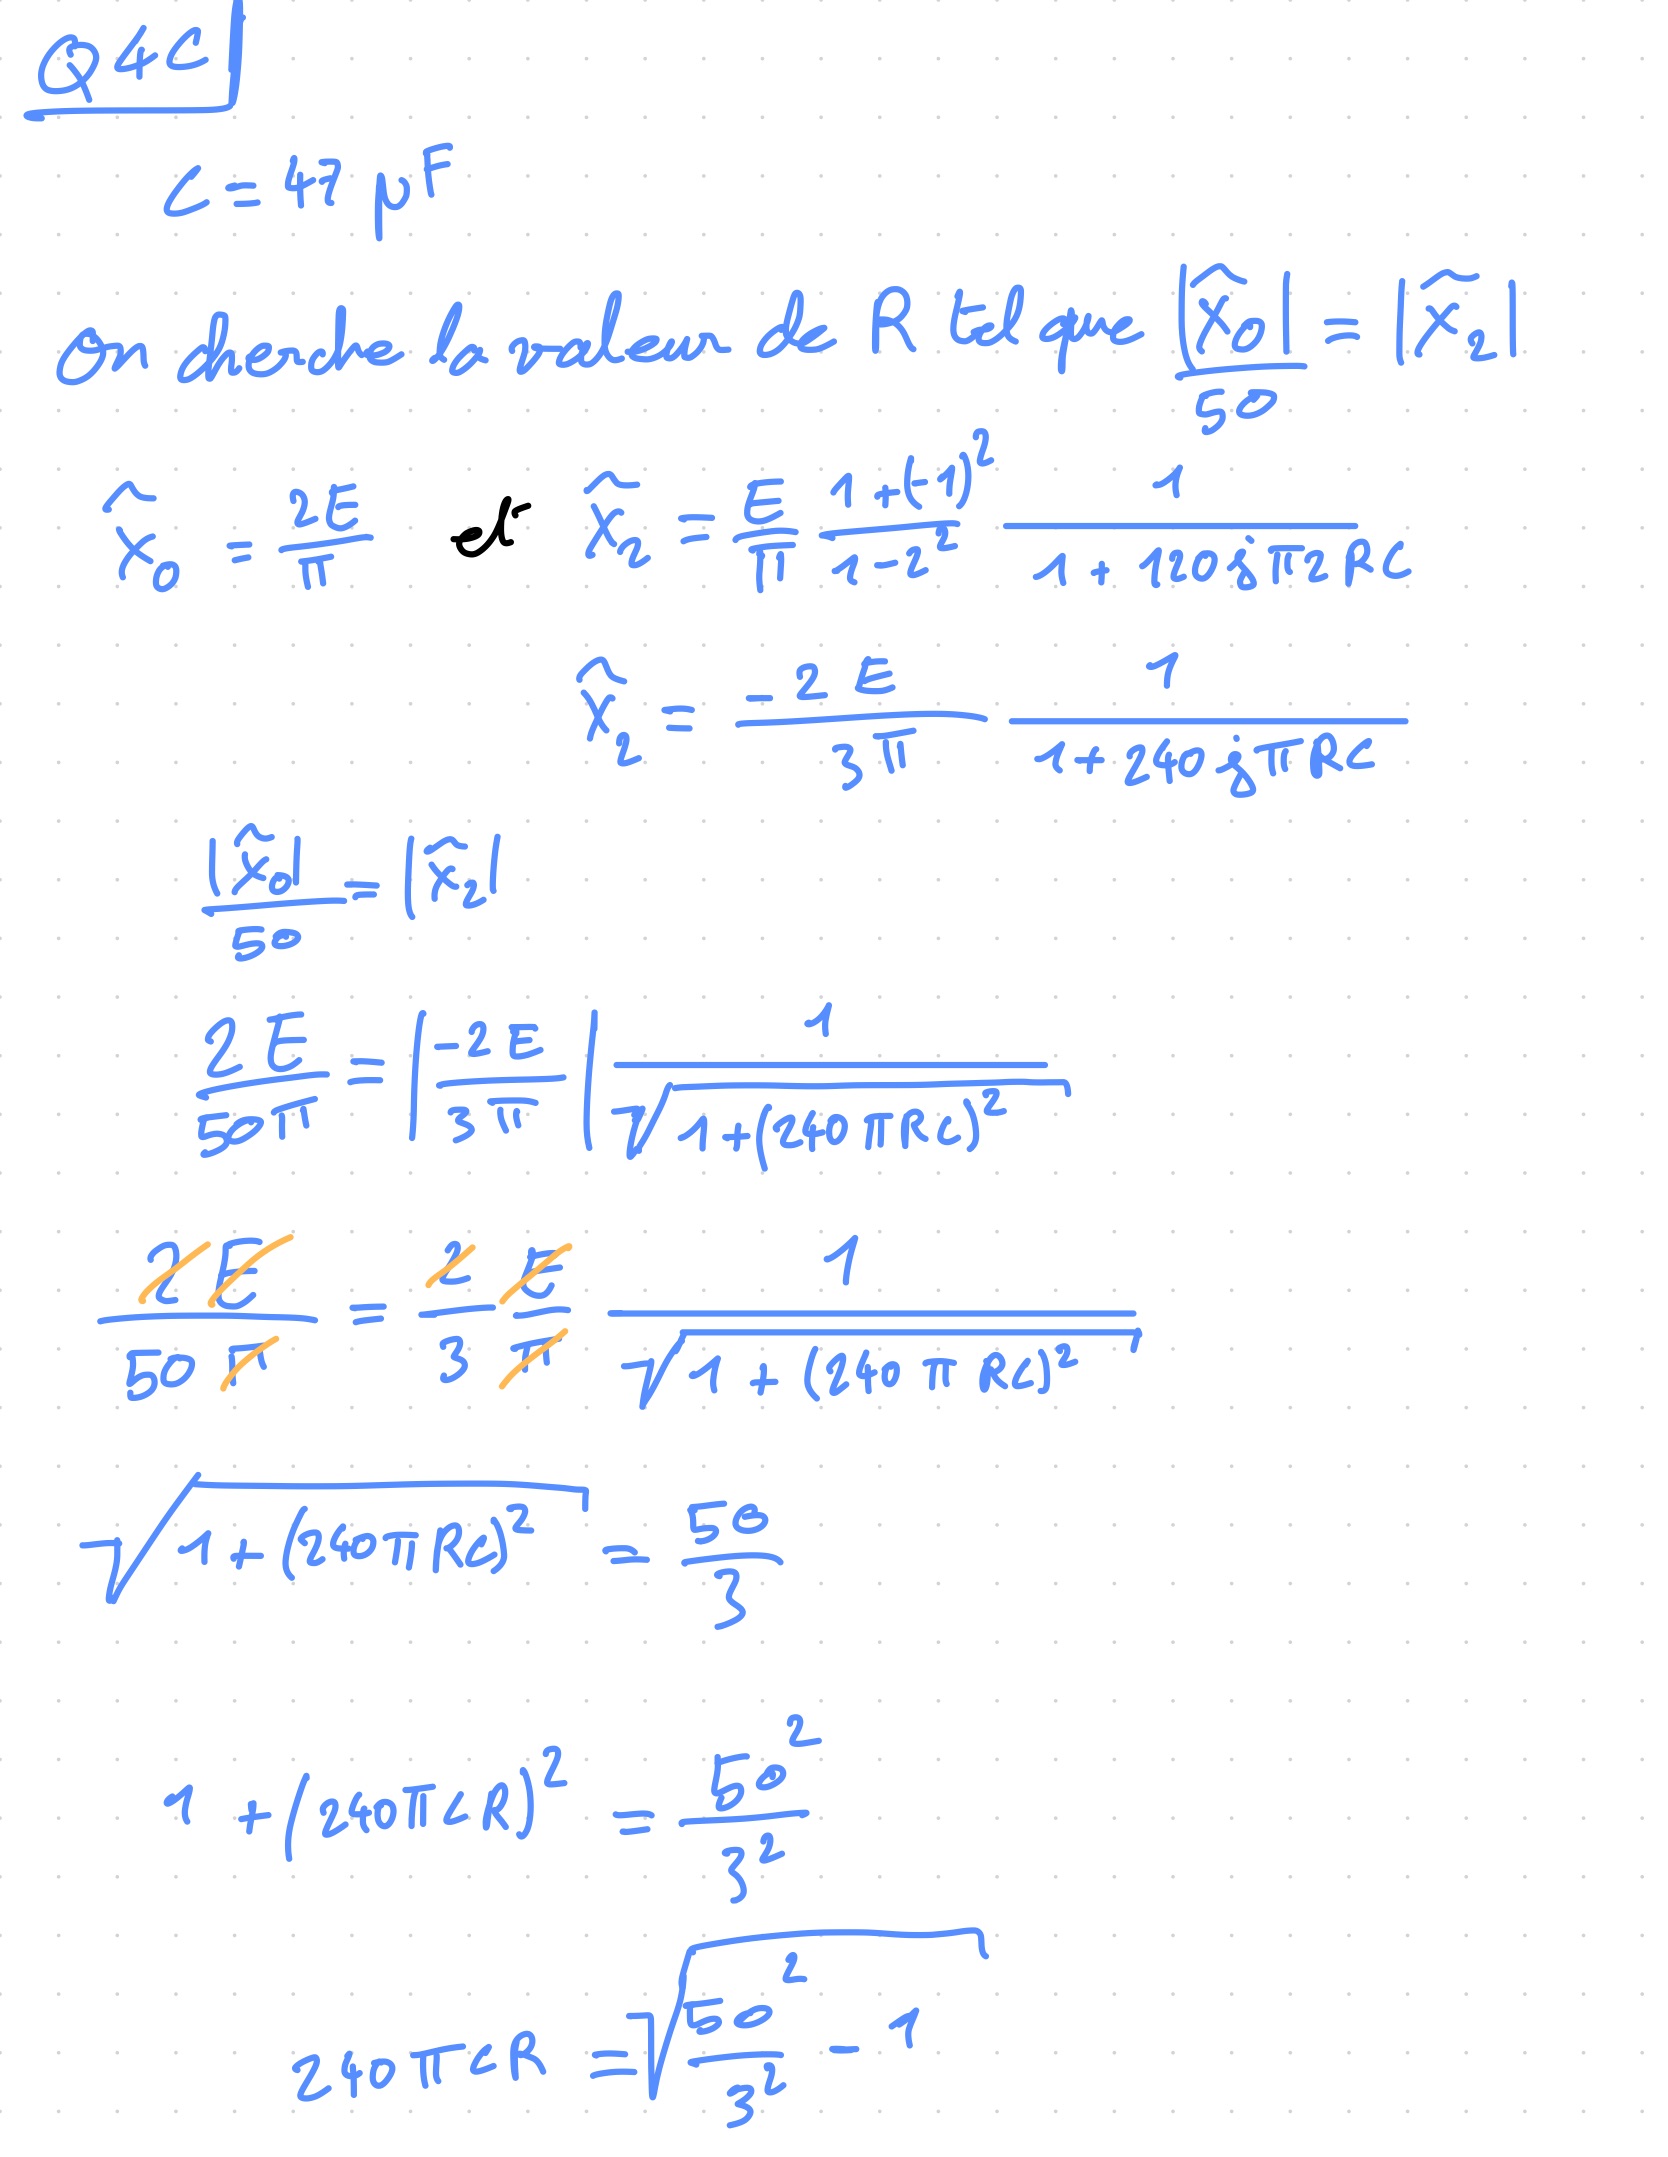 Q4C
C = 47 μF
On cherche la valeur de R tel que |X̂₀|/50 = |X̂₂|
X̂₀ = 2E/π et X̂₂ = E/π (1+(-1)²)/(1-2²) 1/(1+120jπ2RC)
X̂₂ = -2E/3π 1/(1+240jπRC)
|X̂₀|/50 = |X̂₂|
2E/50π = |-2E/3π| 1/√(1+(240πRC)²)
2E/50π = 2/3 E/π 1/√(1+(240πRC)²)
√(1+(240πRC)²) = 50/3
1+(240πCR)² = 50²/3²
240πCR = √(50²/3² - 1)